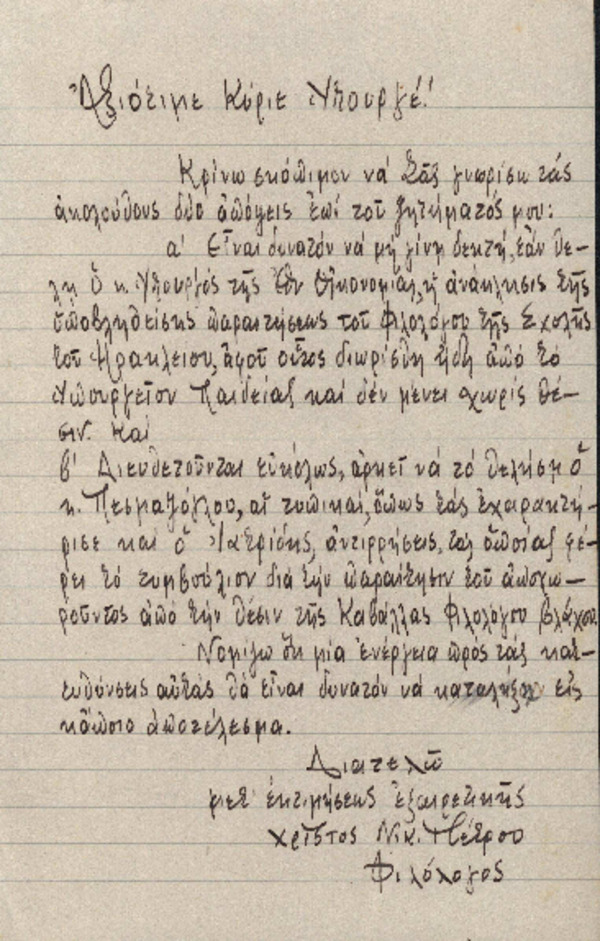 Ἀξιότιμε Κύριε Ὑπουργέ!
Κρίνω σκόπιμον νά Σᾶς γνωρίσω τάς
ἀκολούθους δύο ἀπόψεις ἐπί τοῦ ζητήματός μου:
α' Εἶναι δυνατόν νά μή γίνῃ δεκτή, ἐάν θέ-
λῃ ὁ κ. Ὑπουργός τῆς Ἐθν. Οἰκονομίας, ἡ ἀνάκλησις τῆς
ὑποβληθείσης παραιτήσεως τοῦ Φιλολόγου τῆς Σχολῆς
τοῦ Ἡρακλείου, ἀφοῦ οὗτος διωρίσθη ἤδη ἀπό τό
Ὑπουργεῖον Παιδείας καί δέν μένει χωρίς θέ-
σιν. Καί
β' Διευθετοῦνται εὐκόλως, ἀρκεῖ νά τό θελήσῃ ὁ
κ. Πεσμαζόγλου, αἱ τυπικαί, ὅπως τάς ἐχαρακτή-
ρισε καί ὁ Ἰατρίδης, ἀντιρρήσεις, τάς ὁποίας φέ-
ρει τό συμβούλιον διά τήν παραίτησιν τοῦ ἀποχω-
ροῦντος ἀπό τήν θέσιν τῆς Καβάλλας Φιλολόγου Βλάχου.
Νομίζω ὅτι μία ἐνέργεια πρός τάς κατ-
ευθύνσεις αὐτάς θά εἶναι δυνατόν νά καταλήξῃ εἰς
κἄποιο ἀποτέλεσμα.
Διατελῶ
μετ' ἐκτιμήσεως ἐξαιρετικῆς
Χρῖστος Νικ. Πέτρου
Φιλόλογος